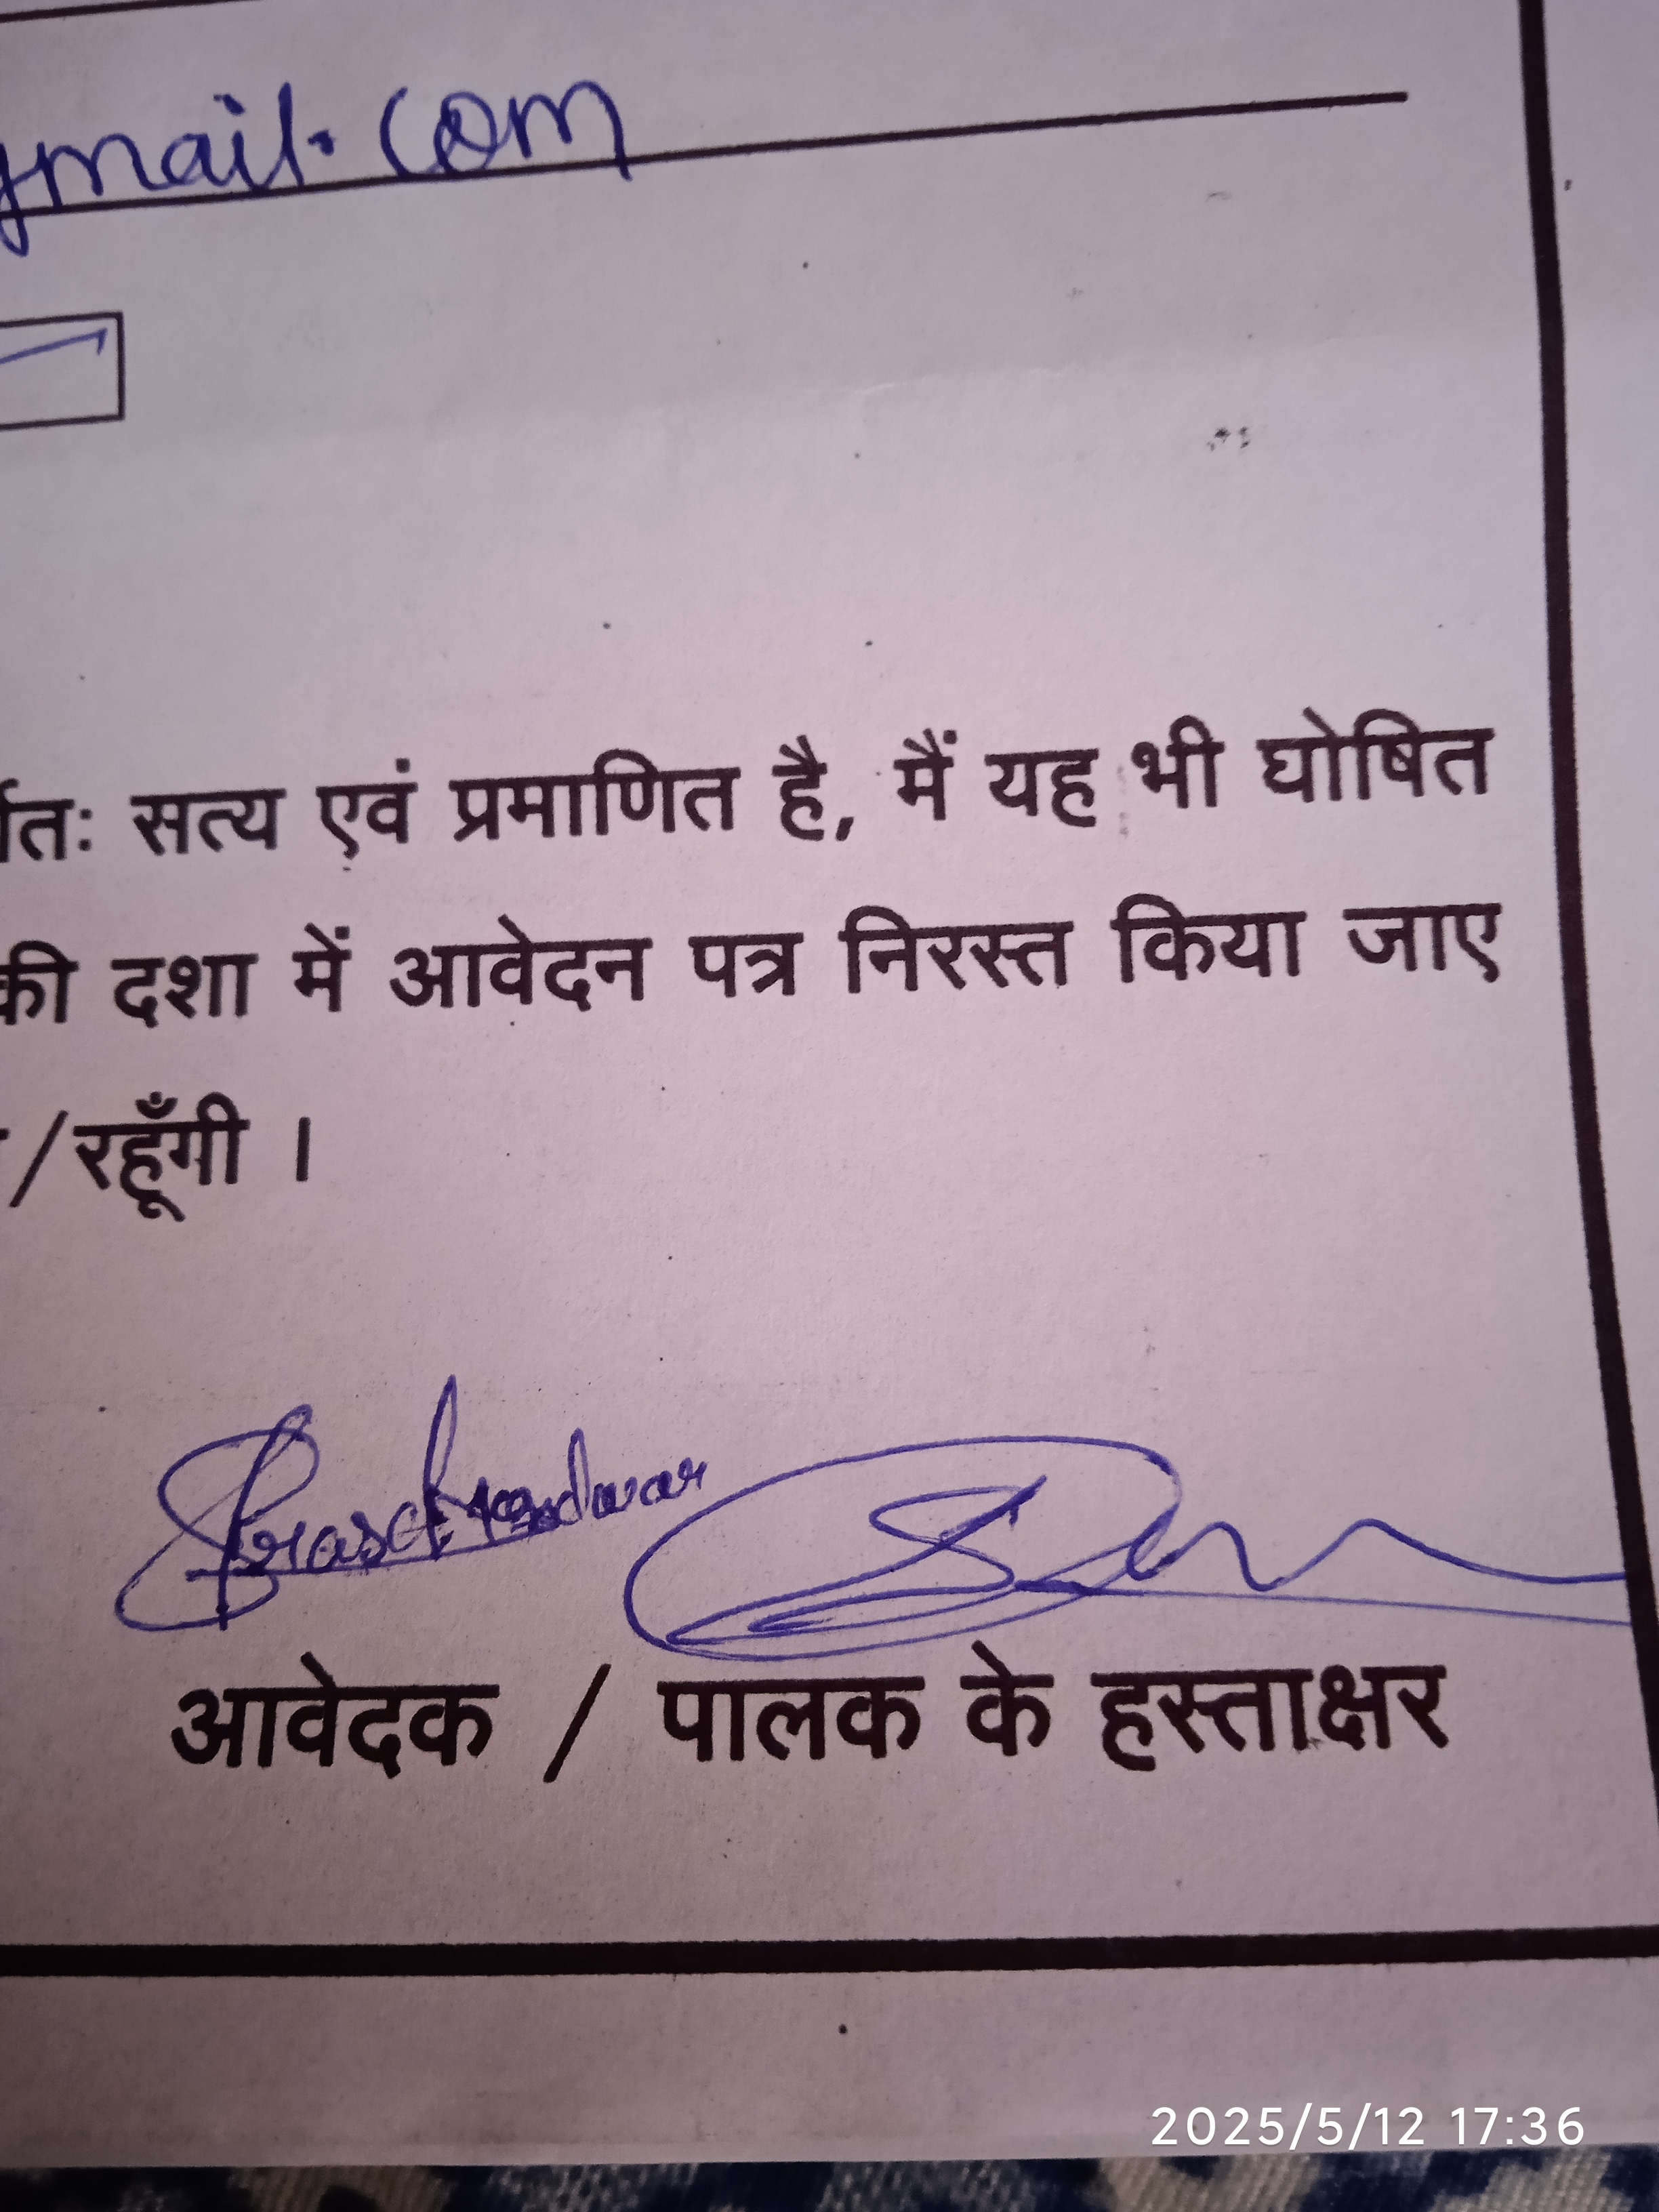 gmail.com
सत्य एवं प्रमाणित है, मैं यह भी घोषित
की दशा में आवेदन पत्र निरस्त किया जाए
/रहूँगी ।
आवेदक / पालक के हस्ताक्षर
2025/5/12 17:36